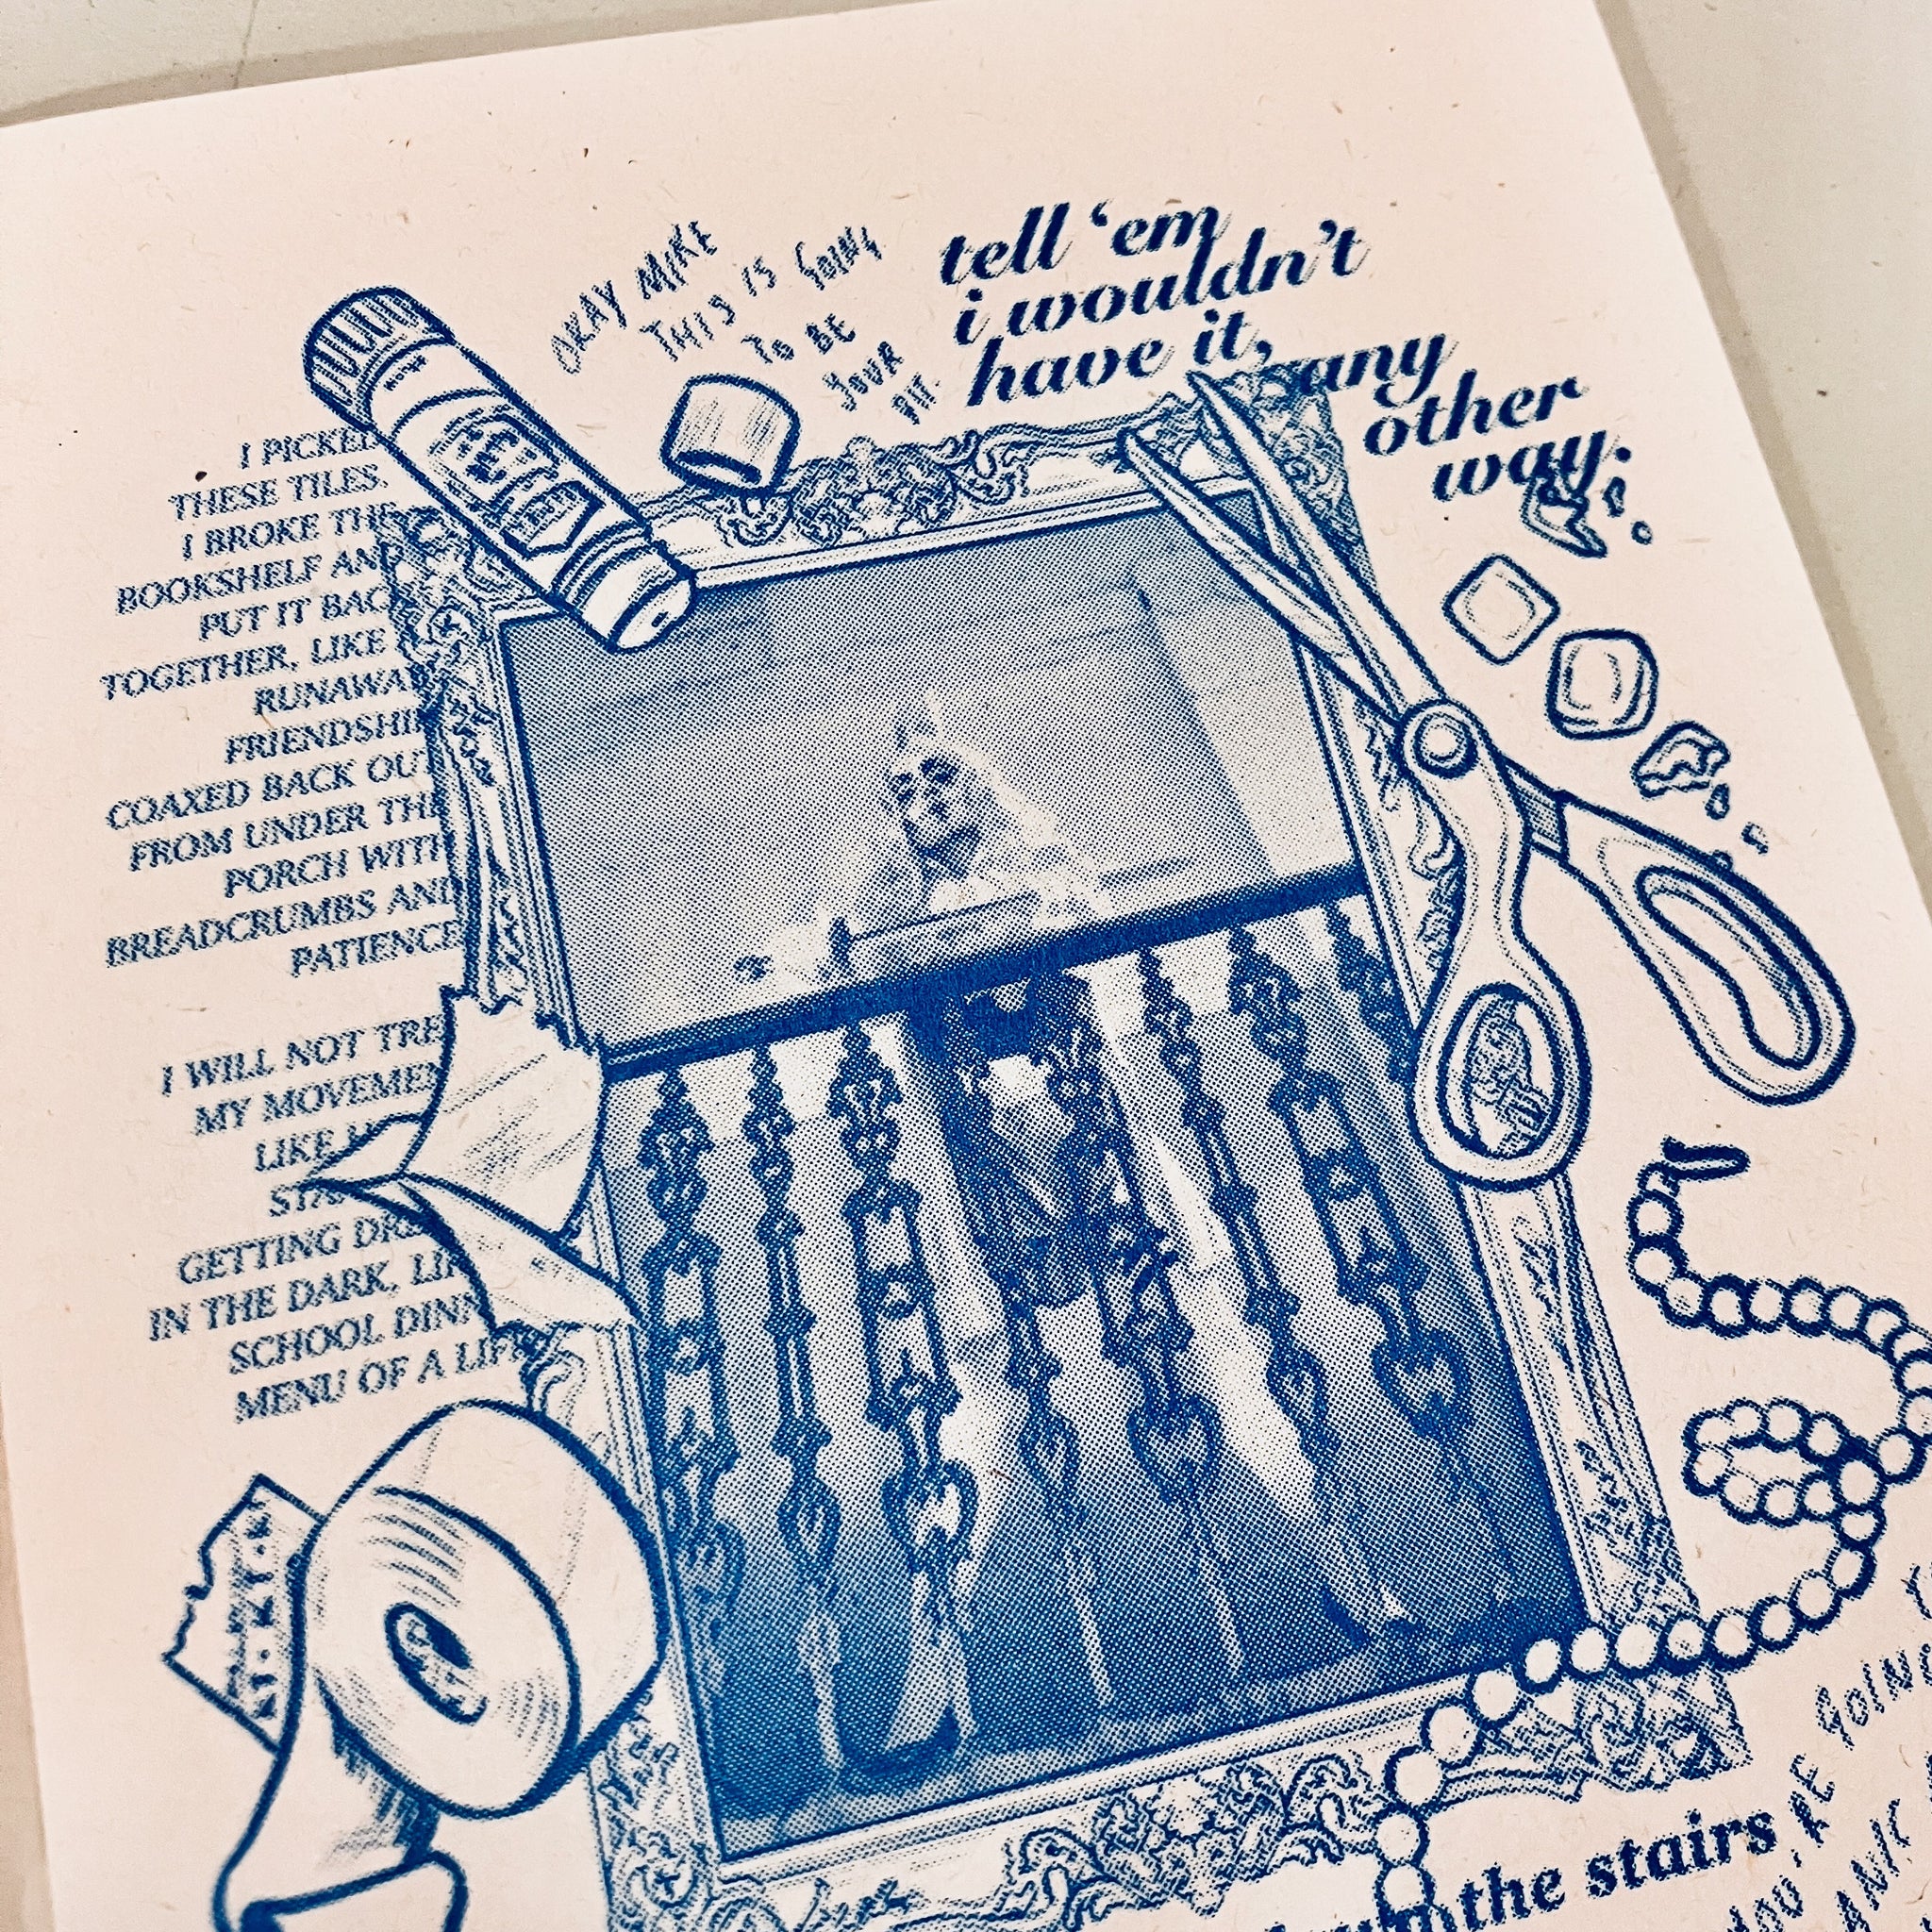 OKAY MIKE
THIS IS GOING
TO BE
YOUR
PIT.
tell ‘em
i wouldn’t
have it, any
other
way.
I PICKED
THESE TILES.
I BROKE THE
BOOKSHELF AND
PUT IT BACK
TOGETHER, LIKE
RUNAWAY
FRIENDSHIP
COAXED BACK OUT
FROM UNDER THE
PORCH WITH
BREADCRUMBS AND
PATIENCE
I WILL NOT TRE
MY MOVEMEN
LIKE
STA
GETTING DRE
IN THE DARK, LIK
SCHOOL DINN
MENU OF A LIFE
the stairs
YOU'RE GOING